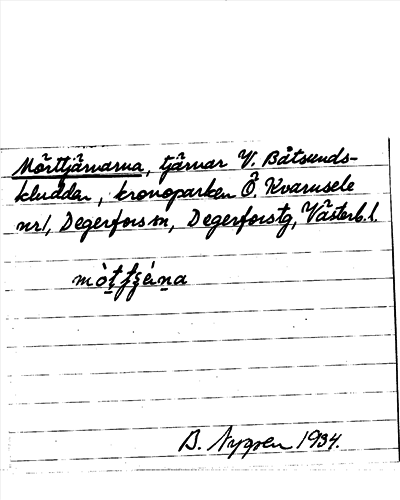 Mörttjärnarna, tjärnar V. Båtsunds-
kluddar, kronoparken Ö. Kvarnsele
nr 1, Degerfors sn, Degerforstg, Västerb. l.
B. Nygren 1934.